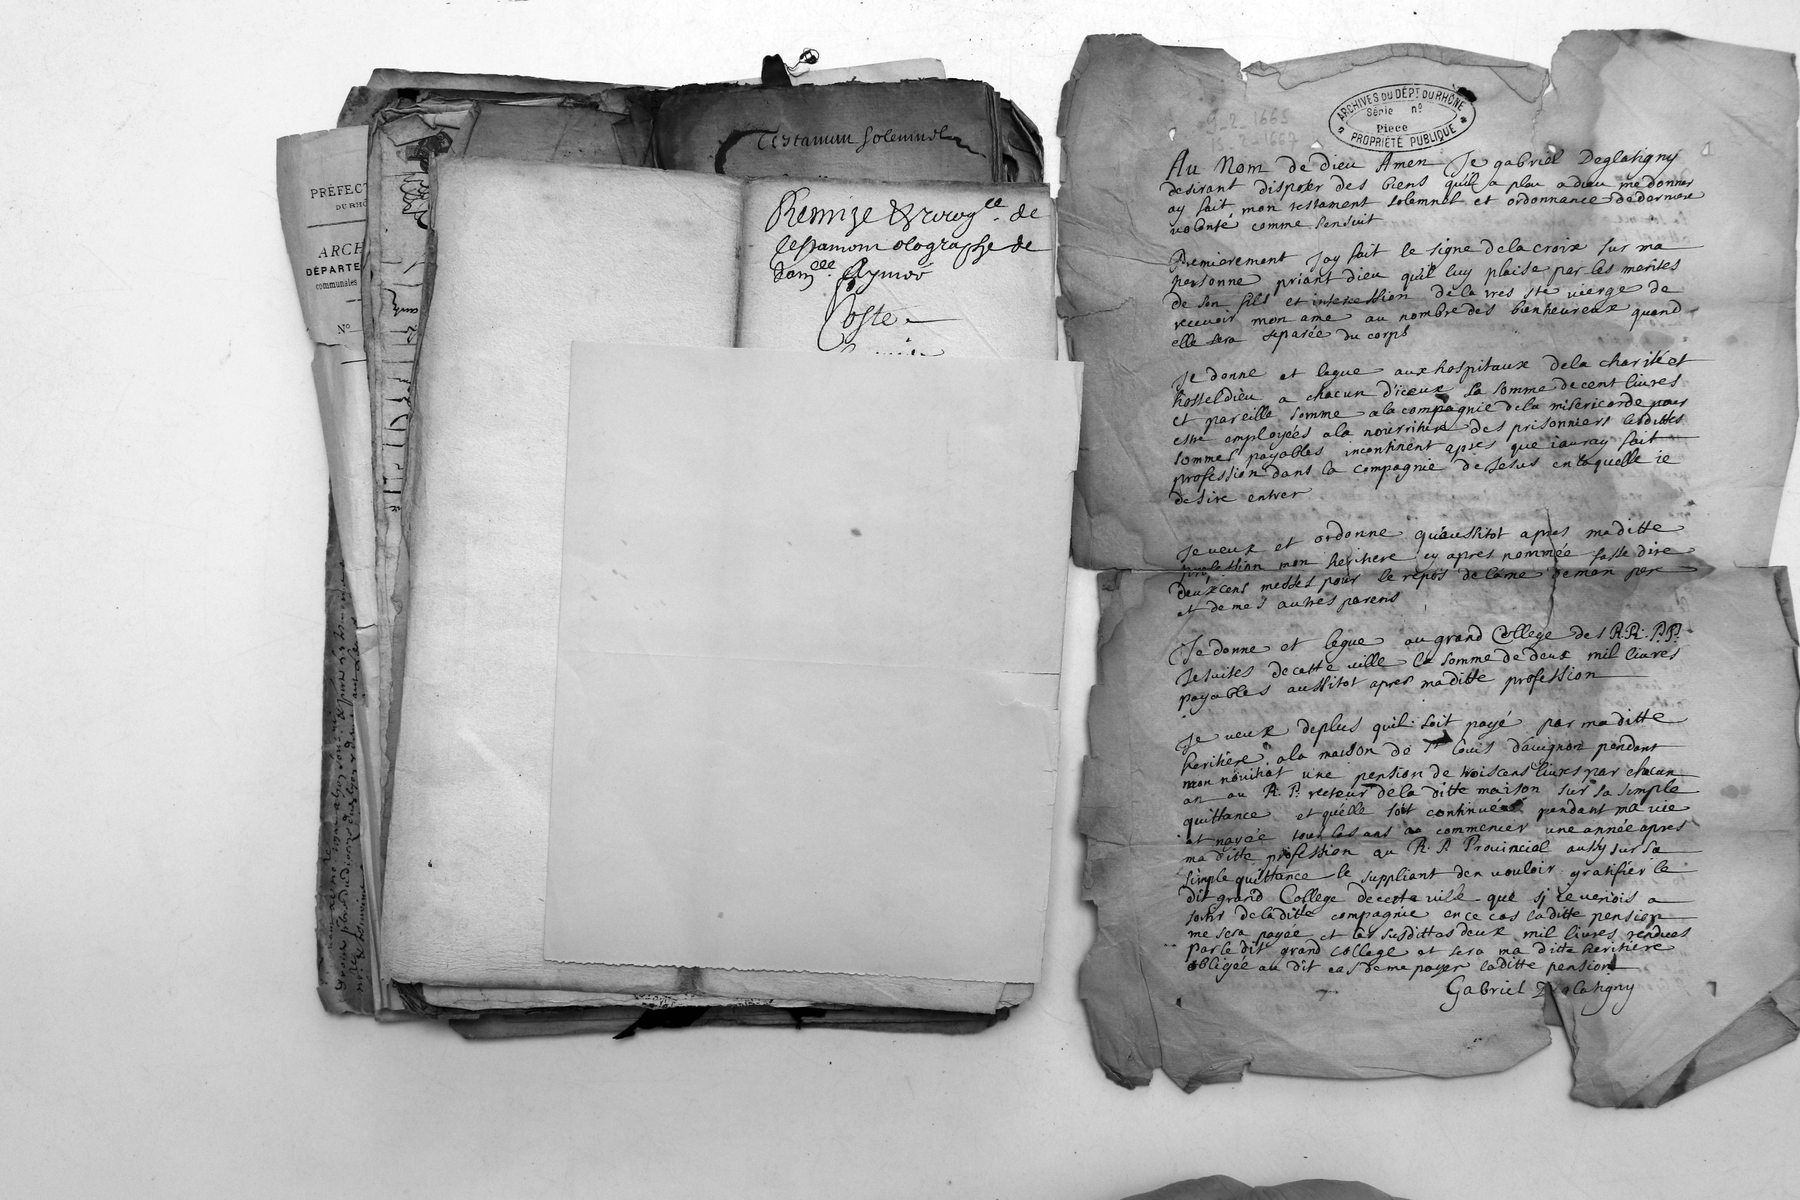 PRÉFECT
DU RHÔ
ARCH
DÉPARTE
communales
N°
Testamen solemnel
Remize &
de
testamen olographe de
dam^lle Aymée
Coste
9-2-1665
13-2-1667
ARCHIVES DU DÉPT DU RHÔNE
Série n°
Pièce
PROPRIÉTÉ PUBLIQUE
1
Au Nom de dieu Amen Je gabriel Deglatigny
desirant disposer des biens qu'il a pleu a dieu me donner
ay fait mon testament solemnel et ordonnance de derniere
volonté comme sensuit
Premierement Jay fait le signe dela croix sur ma
personne priant dieu qu'il luy plaise par les merites
de son fils et intercession dela tres ste vierge de
recevoir mon ame au nombre des bienheureux quand
elle sera separée du corps
Je donne et legue aux hospitaux dela charité et
hostel dieu a chacun d'iceux la somme de cent livres
et pareille somme ala compagnie dela misericorde pour
estre employées ala nourriture des prisonniers lesdittes
sommes payables incontinent apres que iauray fait
profession dans la compagnie de Jesus en laquelle ie
desire entrer
Je veux et ordonne qu'aussitot apres maditte
profession mon heritiere cy apres nommée fasse dire
deux cens messes pour le repos de l'ame de mon pere
et de mes autres parens
Je donne et legue au grand College des R.R. P.P.
Jesuites de cette ville la somme de deux mil livres
payables aussitot apres maditte profession
Je veux deplus quil soit payé par maditte
heritiere ala maison de St Louis d'avignon pendant
mon novitiat une pension de trois cens livres par chacun
an au R. P. recteur dela ditte maison sur sa simple
quittance et quelle soit continuée pendant ma vie
et payée tous les ans a commencer une année apres
ma ditte profession au R. P. Provincial aussy sur sa
simple quittance le suppliant den vouloir gratifier le
dit grand College de cette ville que si ie venois a
sortir dela ditte compagnie en ce cas laditte pension
me sera payée et les susdittes deux mil livres rendues
par le dit grand college et sera ma ditte heritiere
obligée au dit cas de me payer laditte pension
Gabriel Deglatigny